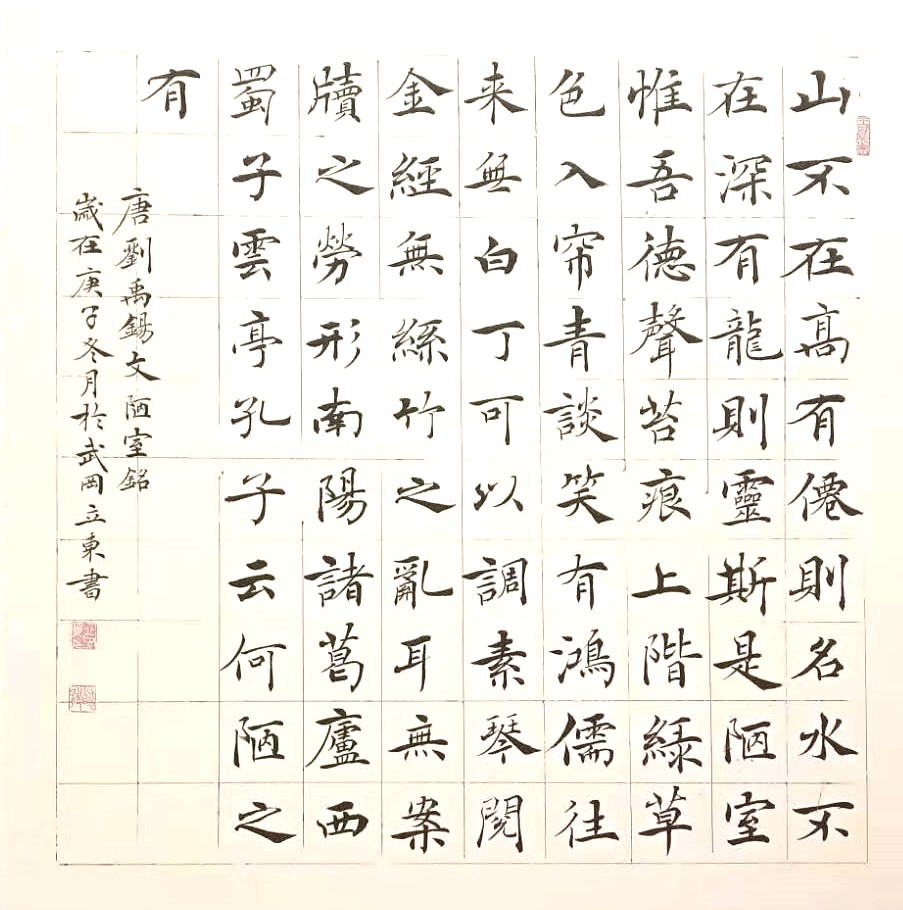 山不在高有僊則名水不
在深有龍則靈斯是陋室
惟吾德聲苔痕上階緑草
色入帘青談笑有鴻儒往
来無白丁可以調素琴閱
金經無絲竹之亂耳無案
牘之勞形南陽諸葛廬西
蜀子雲亭孔子云何陋之
有
唐劉禹錫文陋室銘
歲在庚子冬月於武岡立東書